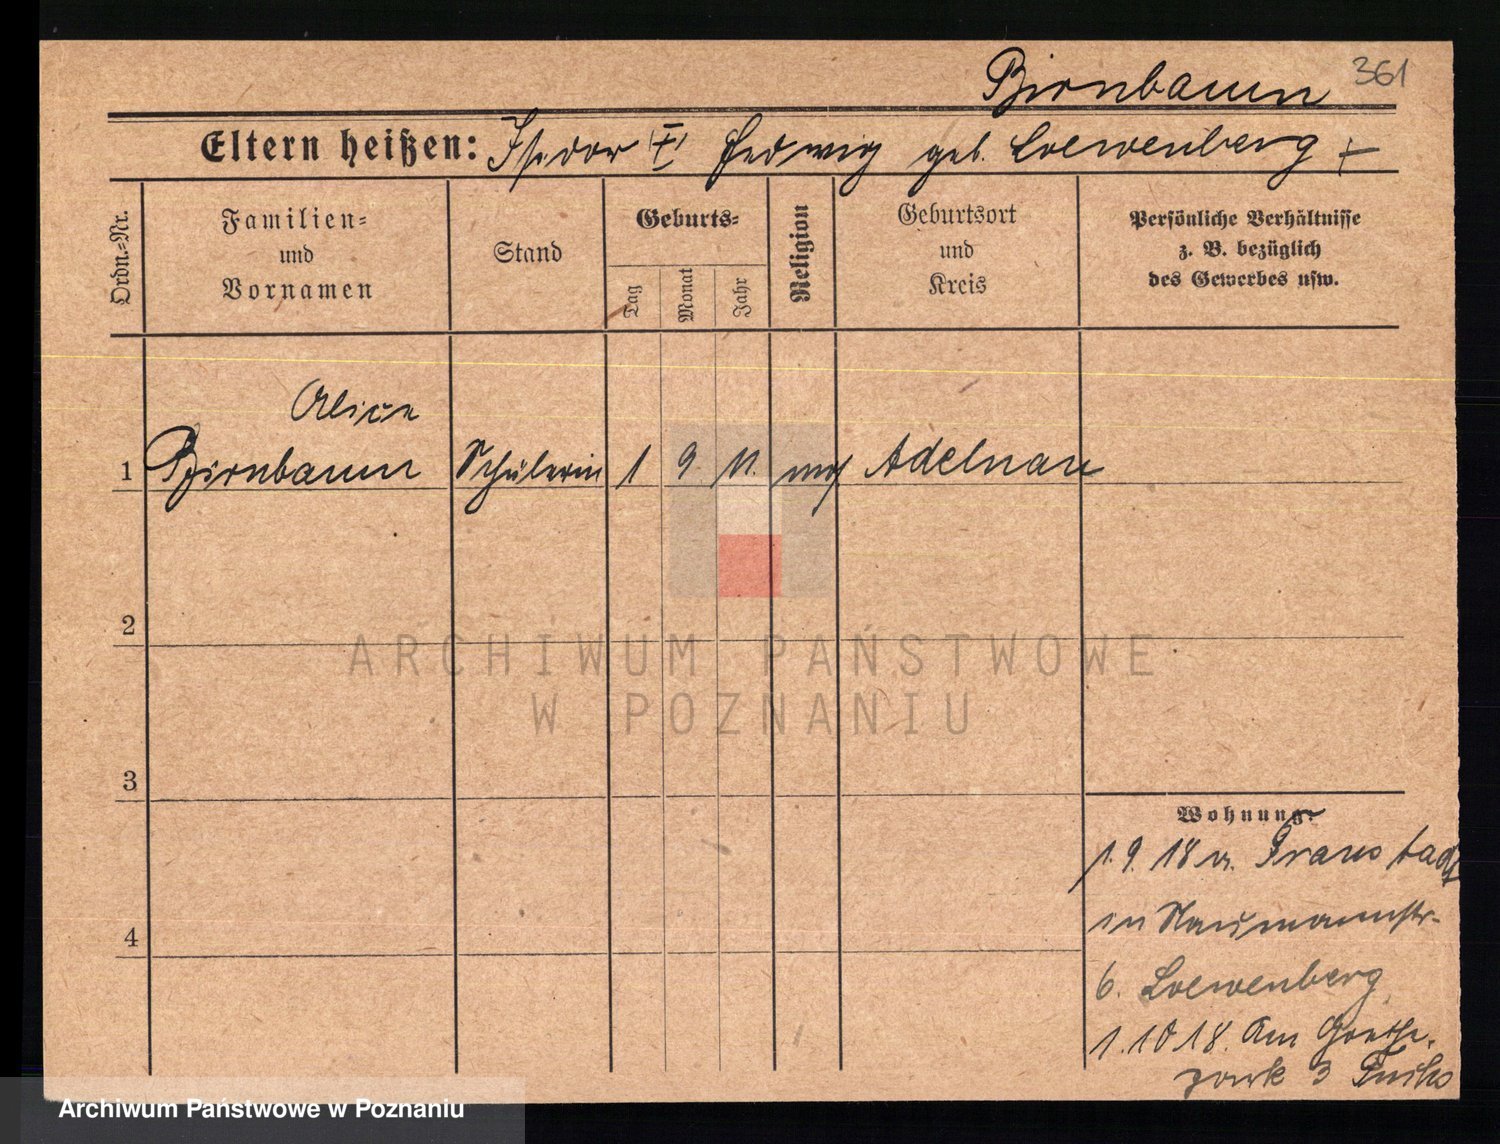 Birnbaum 361
Eltern heißen: Isidor (†) Hedwig geb. Loewenberg +
Ordn.-Nr.
Familien-
und
Vornamen
Stand
Geburts-
Tag
Monat
Jahr
Religion
Geburtsort
und
Kreis
Persönliche Verhältnisse
z. B. bezüglich
des Gewerbes usw.
Alice
1 Birnbaum Schülerin 1 9. 11. mos Adelnau
2
3
4
Wohnung:
1. 9. 18 v. Fraustadt
in Naumannstr.
6. Loewenberg
1. 10 18. Am Goethe-
park 3
ARCHIWUM PAŃSTWOWE
W POZNANIU
Archiwum Państwowe w Poznaniu